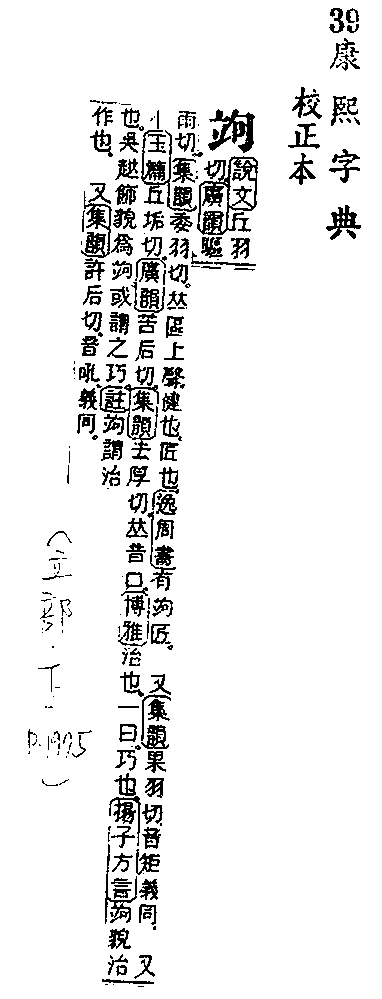 39 康熙字典
校正本
竘
說文丘羽
切廣韻驅
雨切集韻委羽切𠀤區上聲健也匠也逸周書有竘匠。又集韻果羽切音矩義同。又
玉篇丘垢切廣韻苦后切集韻去厚切𠀤音口博雅治也一曰巧也揚子方言竘貌治
也吳越飾貌爲竘或謂之巧註竘謂治
作也。又集韻許后切音吼義同。
(立部.下-
P.1975)